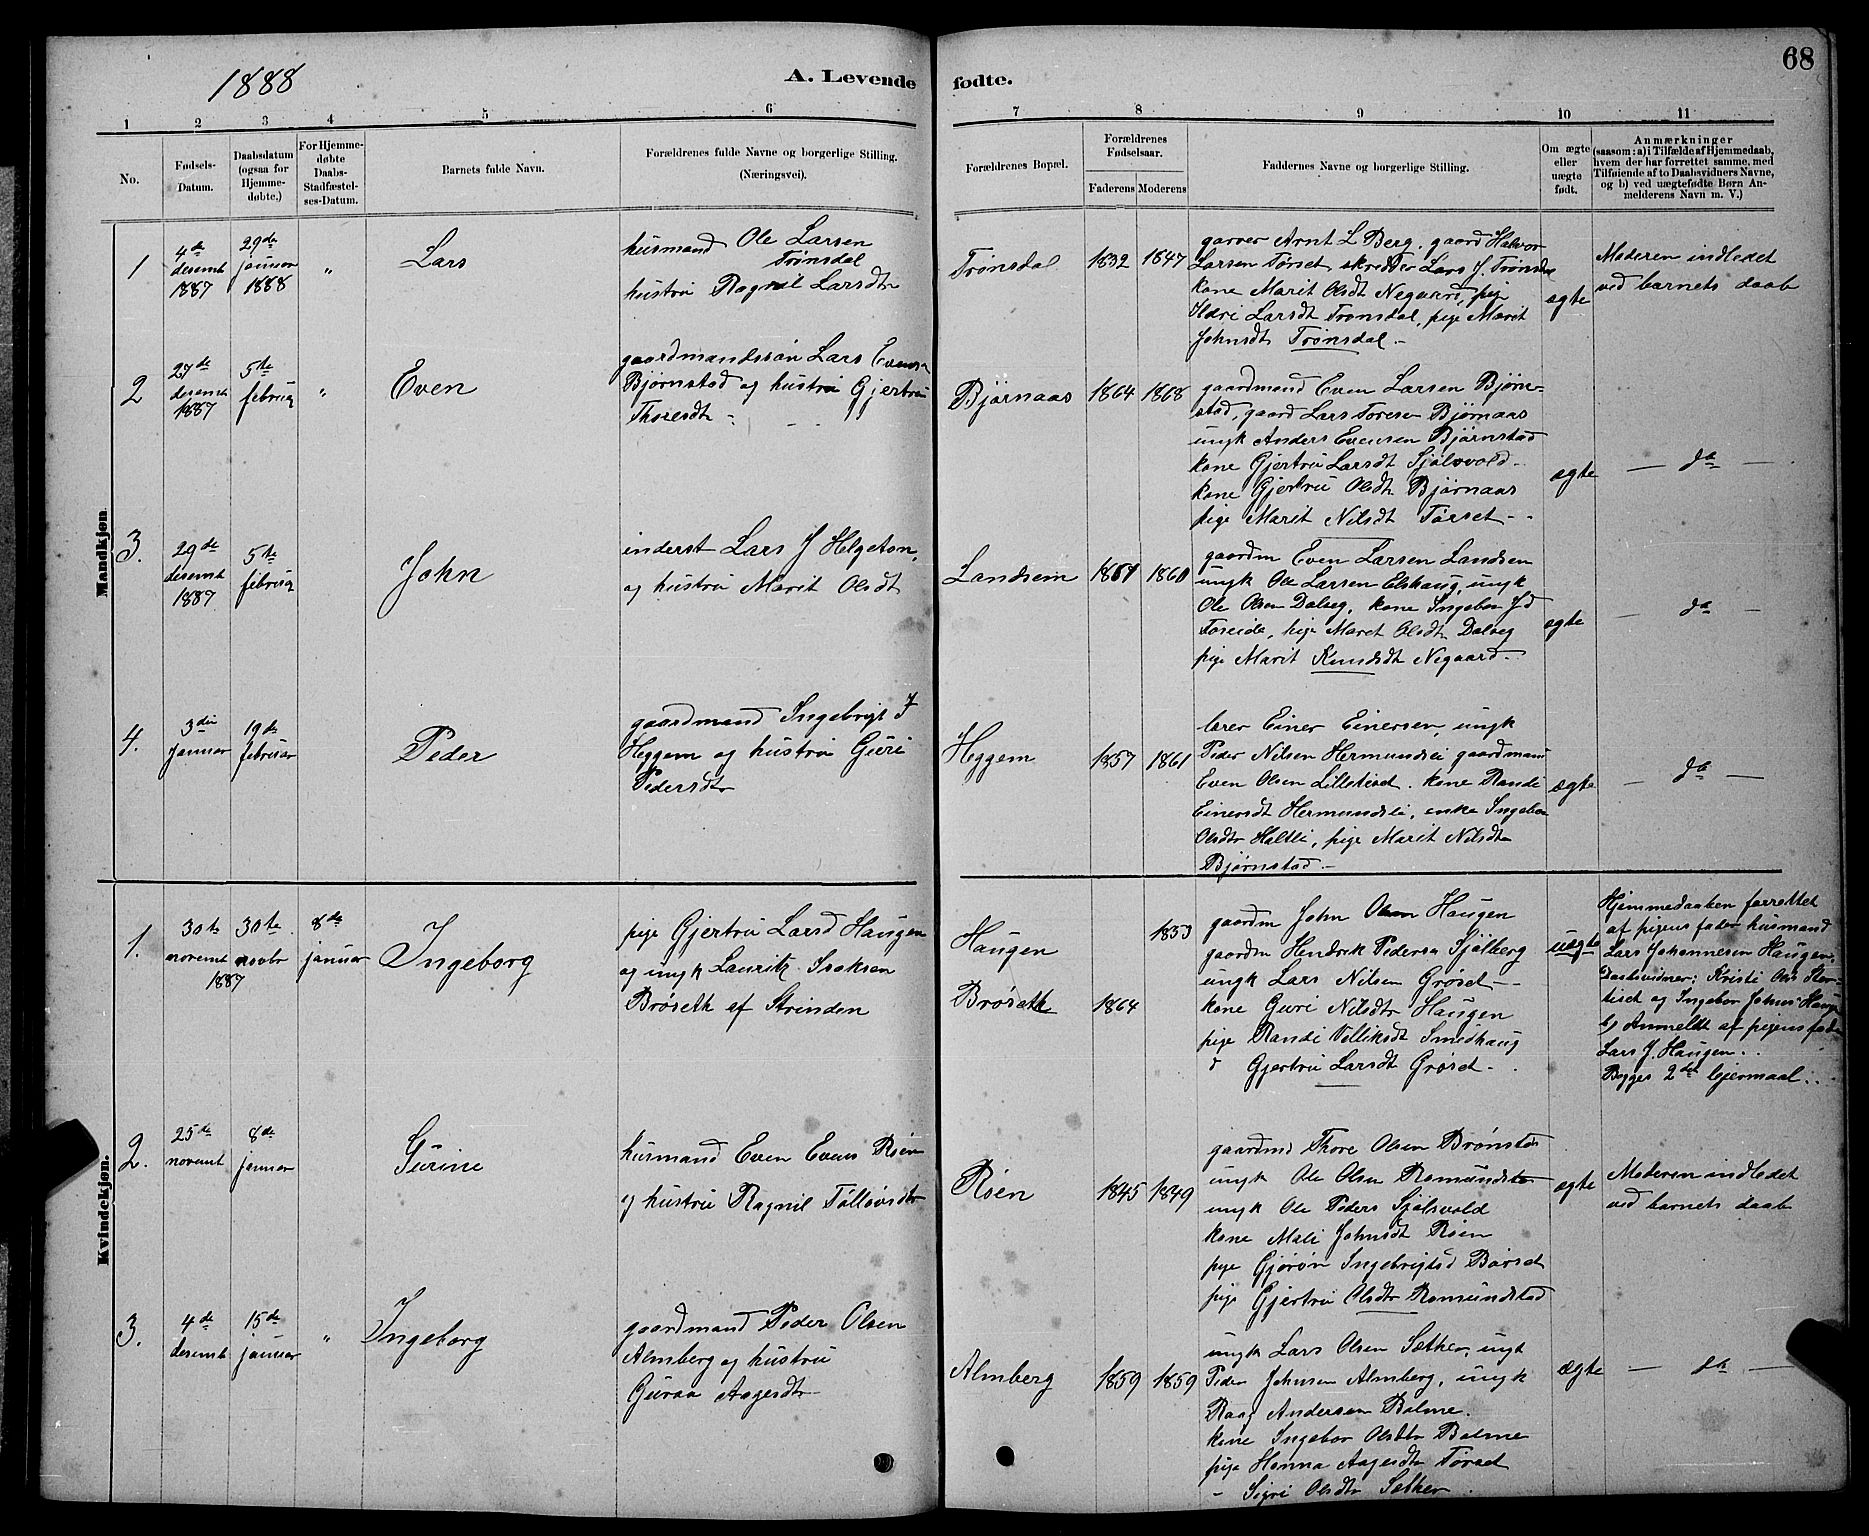 1888
A. Levende fødte.
68
1 2 3 4 5 6 7 8 9 10 11
No.
Fødsels-Datum.
Daabsdatum (ogsaa for Hjemme-døbte.)
For Hjemme-døbte Daabs-Stadfæstel-ses-Datum.
Barnets fulde Navn.
Forældrenes fulde Navne og borgerlige Stilling. (Næringsvei).
Forældrenes Bopæl.
Forældrenes Fødselsaar.
Faderens Moderens
Faddernes Navne og borgerlige Stilling.
Om ægte eller uægte født.
Anmærkninger
(saasom: a) i Tilfælde af Hjemmedaab,
hvem der har forrettet samme, med
Tilføiende af to Daabsvidners Navne,
og b) ved uægtefødte Børn An-
melderens Navn m. V.)
Mandkjøn
1
4de desembr 1887
29de januar 1888
"
Lars
husmand Ole Larsen
Trønsdal
hustru Ragnil Larsdtr
Trønsdal
1832 1847
garver Arnt L Berg. gaard Halvor
Larsen Tørset skredder Lars J. Trønsdal
kone Marit Olsdt Negaard, pige
Ildri Larsdt Trønsdal, pige Marit
Johnsdt Trønsdal -
ægte
Moderen indledet
ved barnets daab
2
27de desembr 1887
5te februar
"
Even
gaardmandssøn Lars Evensen
Bjørnstad og hustru Gjertru
Thoresdt -
Bjørnaas
1864 1868
gaardmand Even Larsen Bjørn-
stad, gaard Lars Toresen Bjørnaas
ungk Anders Evensen Bjørnstad
kone Gjertru Larsdt Sjølsvold -
kone Gjertru Olsdt Bjørnaas
pige Marit Nilsdt Tørset - -
ægte
- da -
3.
29de desembr 1887
5te februar
John
inderst Lars J Helgeton,
og hustru Marit Olsdt
Landsem
1861 1860
gaardm Even Larsen Landsem
ungk Ole Larsen Elshaug, ungk
Ole Olsen Dalseg, kone Ingebor Jd
Foreide, pige Maret Olsdt Dalseg
pige Marit Knudsdt Negaard -
ægte
- da -
4.
3die januar
19de februar
Peder
gaardmand Ingebrigt J
Heggem og hustru Guri
Pedersdtr
Heggem
1857 1861
lærer Einer Einersen, ungk
Peder Nilsen Hermundsli gaardmand
Even Olsen Lillekød. kone Randi
Einersdt Hermundsli, enke Ingebor
Olsdtr Haltli, pige Marit Nilsdtr
Bjørnstad -
ægte
- da -
Kvindekjøn.
1.
30te novembr 1887
30te novbr
8de januar
Ingeborg
pige Gjertru Larsd Haugen
og ungk Lauritz Isaksen
Brøseth af Strinden
Haugen
1853
Brøseth
1864
gaardm John Olsen Haugen
gaardm Hendrik Pedersen Sjølberg
ungk Lars Nilsen Grøset -
kone Guri Nilsdtr Haugen
pige Randi Velliksdt Smedhaug
d Gjertru Larsdt Grøset -
uægte
Hjemmedaaben forrettet
af pigens fader husmand
Lars Johannesen Haugen.
Daabsvidner: Kristi Ols
og Ingebor Johns Haugen
b) Anmeldt af pigens fader
Lars J. Haugen.
Begges 2det lejermaal.
2.
25de novembr
8de januar
Gurine
husmand Even Evens Røen
og hustru Ragnil Tølløvsdtr
Røen
1845 1849
gaardmd Thore Olsen Brønstad
ungk Ole Olsen Romundstad
ungk Ole Peders Sjølsvold
kone Mali Johnsdt Røen
pige Gjørøn Ingebrigtsd Børset
pige Gjertru Olsdtr Romundstad
ægte
Moderen indledet
ved barnets daab
3.
4de desembr
15de januar
"
Ingeborg
gaardmand Peder Olsen
Almberg og hustru
Guraa Aagesdtr
Almberg
1859 1859
ungk Lars Olsen Sæther, ungk
Peder Johnsen Almberg, ungk
Raag Andersen Bolme.
kone Ingebor Olsdtr Bolme
pige Hanna Aagesdtr Tørset
- Sigri Olsdtr Sæther.
ægte
- da -